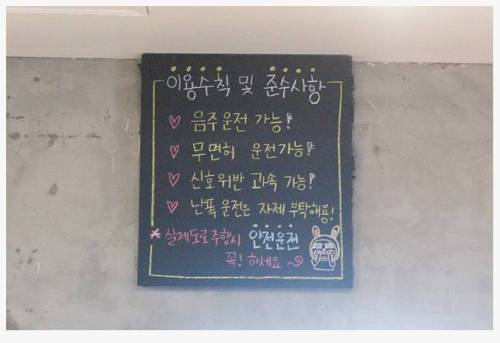 이용수칙 및 준수사항
♡ 음주운전 가능!
♡ 무면허 운전가능!
♡ 신호위반 과속 가능!
♡ 난폭운전은 자제 부탁해용!
* 실제도로주행시 안전운전
꼭! 하세요~